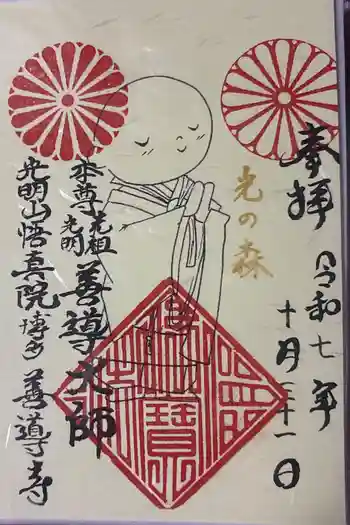 奉拝
令和七年
十月三十一日
光の森
本尊 元祖光明 善導大師
光明山悟真院 博多 善導寺